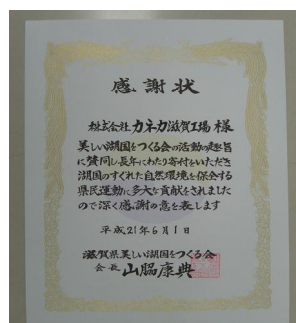 感謝状
株式会社カネカ滋賀工場 様
美しい湖国をつくる会の活動の趣旨
に賛同し長年にわたり寄付をいただき
湖国のすぐれた自然環境を保全する
県民運動に多大な貢献をされました
ので深く感謝の意を表します
平成21年6月1日
滋賀県美しい湖国をつくる会
会長 山脇康典